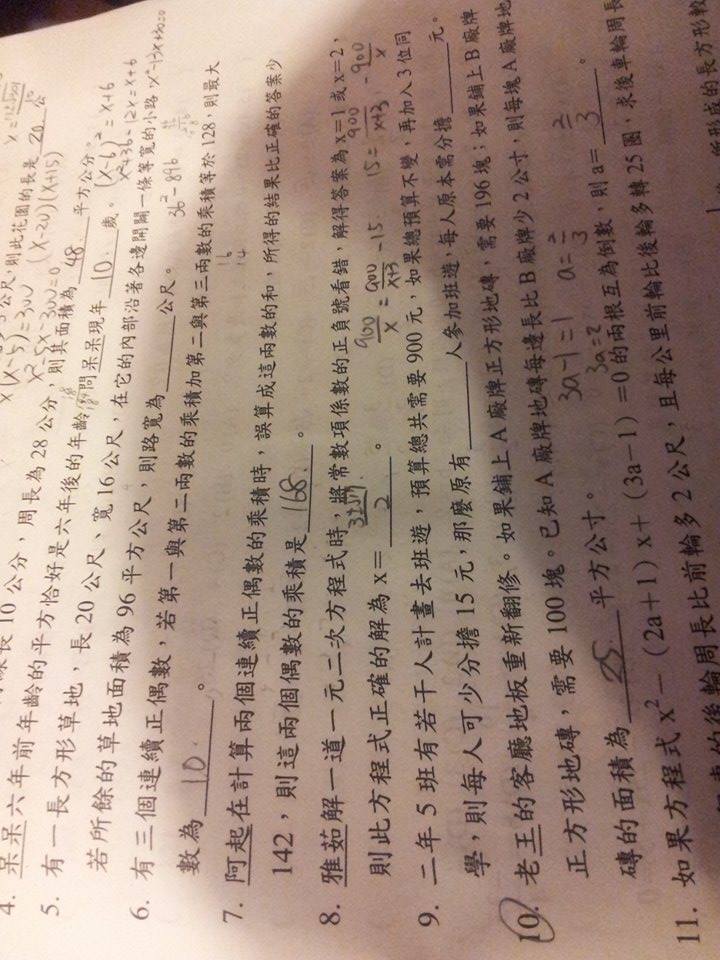 公尺,則此花園的長是 20 公
長 10 公分,周長為 28 公分,則其面積為 48 平方公分。
4. 呆呆六年前年齡的平方恰好是六年後的年齡,問呆呆現年 10 歲。
5. 有一長方形草地,長 20 公尺、寬 16 公尺,在它的內部沿著各邊開闢一條等寬的小路,
若所餘的草地面積為 96 平方公尺,則路寬為 公尺。
6. 有三個連續正偶數,若第一與第二兩數的乘積加第二與第三兩數的乘積等於 128,則最大
數為 10 。
7. 阿起在計算兩個連續正偶數的乘積時,誤算成這兩數的和,所得的結果比正確的答案少
142,則這兩個偶數的乘積是 168 。
8. 雅茹解一道一元二次方程式時,將常數項係數的正負號看錯,解得答案為 x=1 或 x=2,
則此方程式正確的解為 x= 。
9. 二年 5 班有若干人計畫去班遊,預算總共需要 900 元,如果總預算不變,再加入 3 位同
學,則每人可少分擔 15 元,那麼原有 人參加班遊,每人原本需分擔 元。
10. 老王的客廳地板重新翻修。如果鋪上 A 廠牌正方形地磚,需要 196 塊;如果鋪上 B 廠牌
正方形地磚,需要 100 塊。已知 A 廠牌地磚每邊長比 B 廠牌少 2 公寸,則每塊 A 廠牌地
磚的面積為 25 平方公寸。
11. 如果方程式 x²-(2a+1)x+(3a-1)=0 的兩根互為倒數,則 a= 2/3 。
的後輪周長比前輪多 2 公尺,且每公里前輪比後輪多轉 25 圈,求後車輪周長
所形成的長方形較
x(x-5)=300
x²-5x-300=0
(x-20)(x+15)
(x-6)²=x+6
x²+36-12x=x+6
900/x = 900/x+3 -15
15= 900/x+3 - 900/x
3a-1=1
3a=2
a=2/3